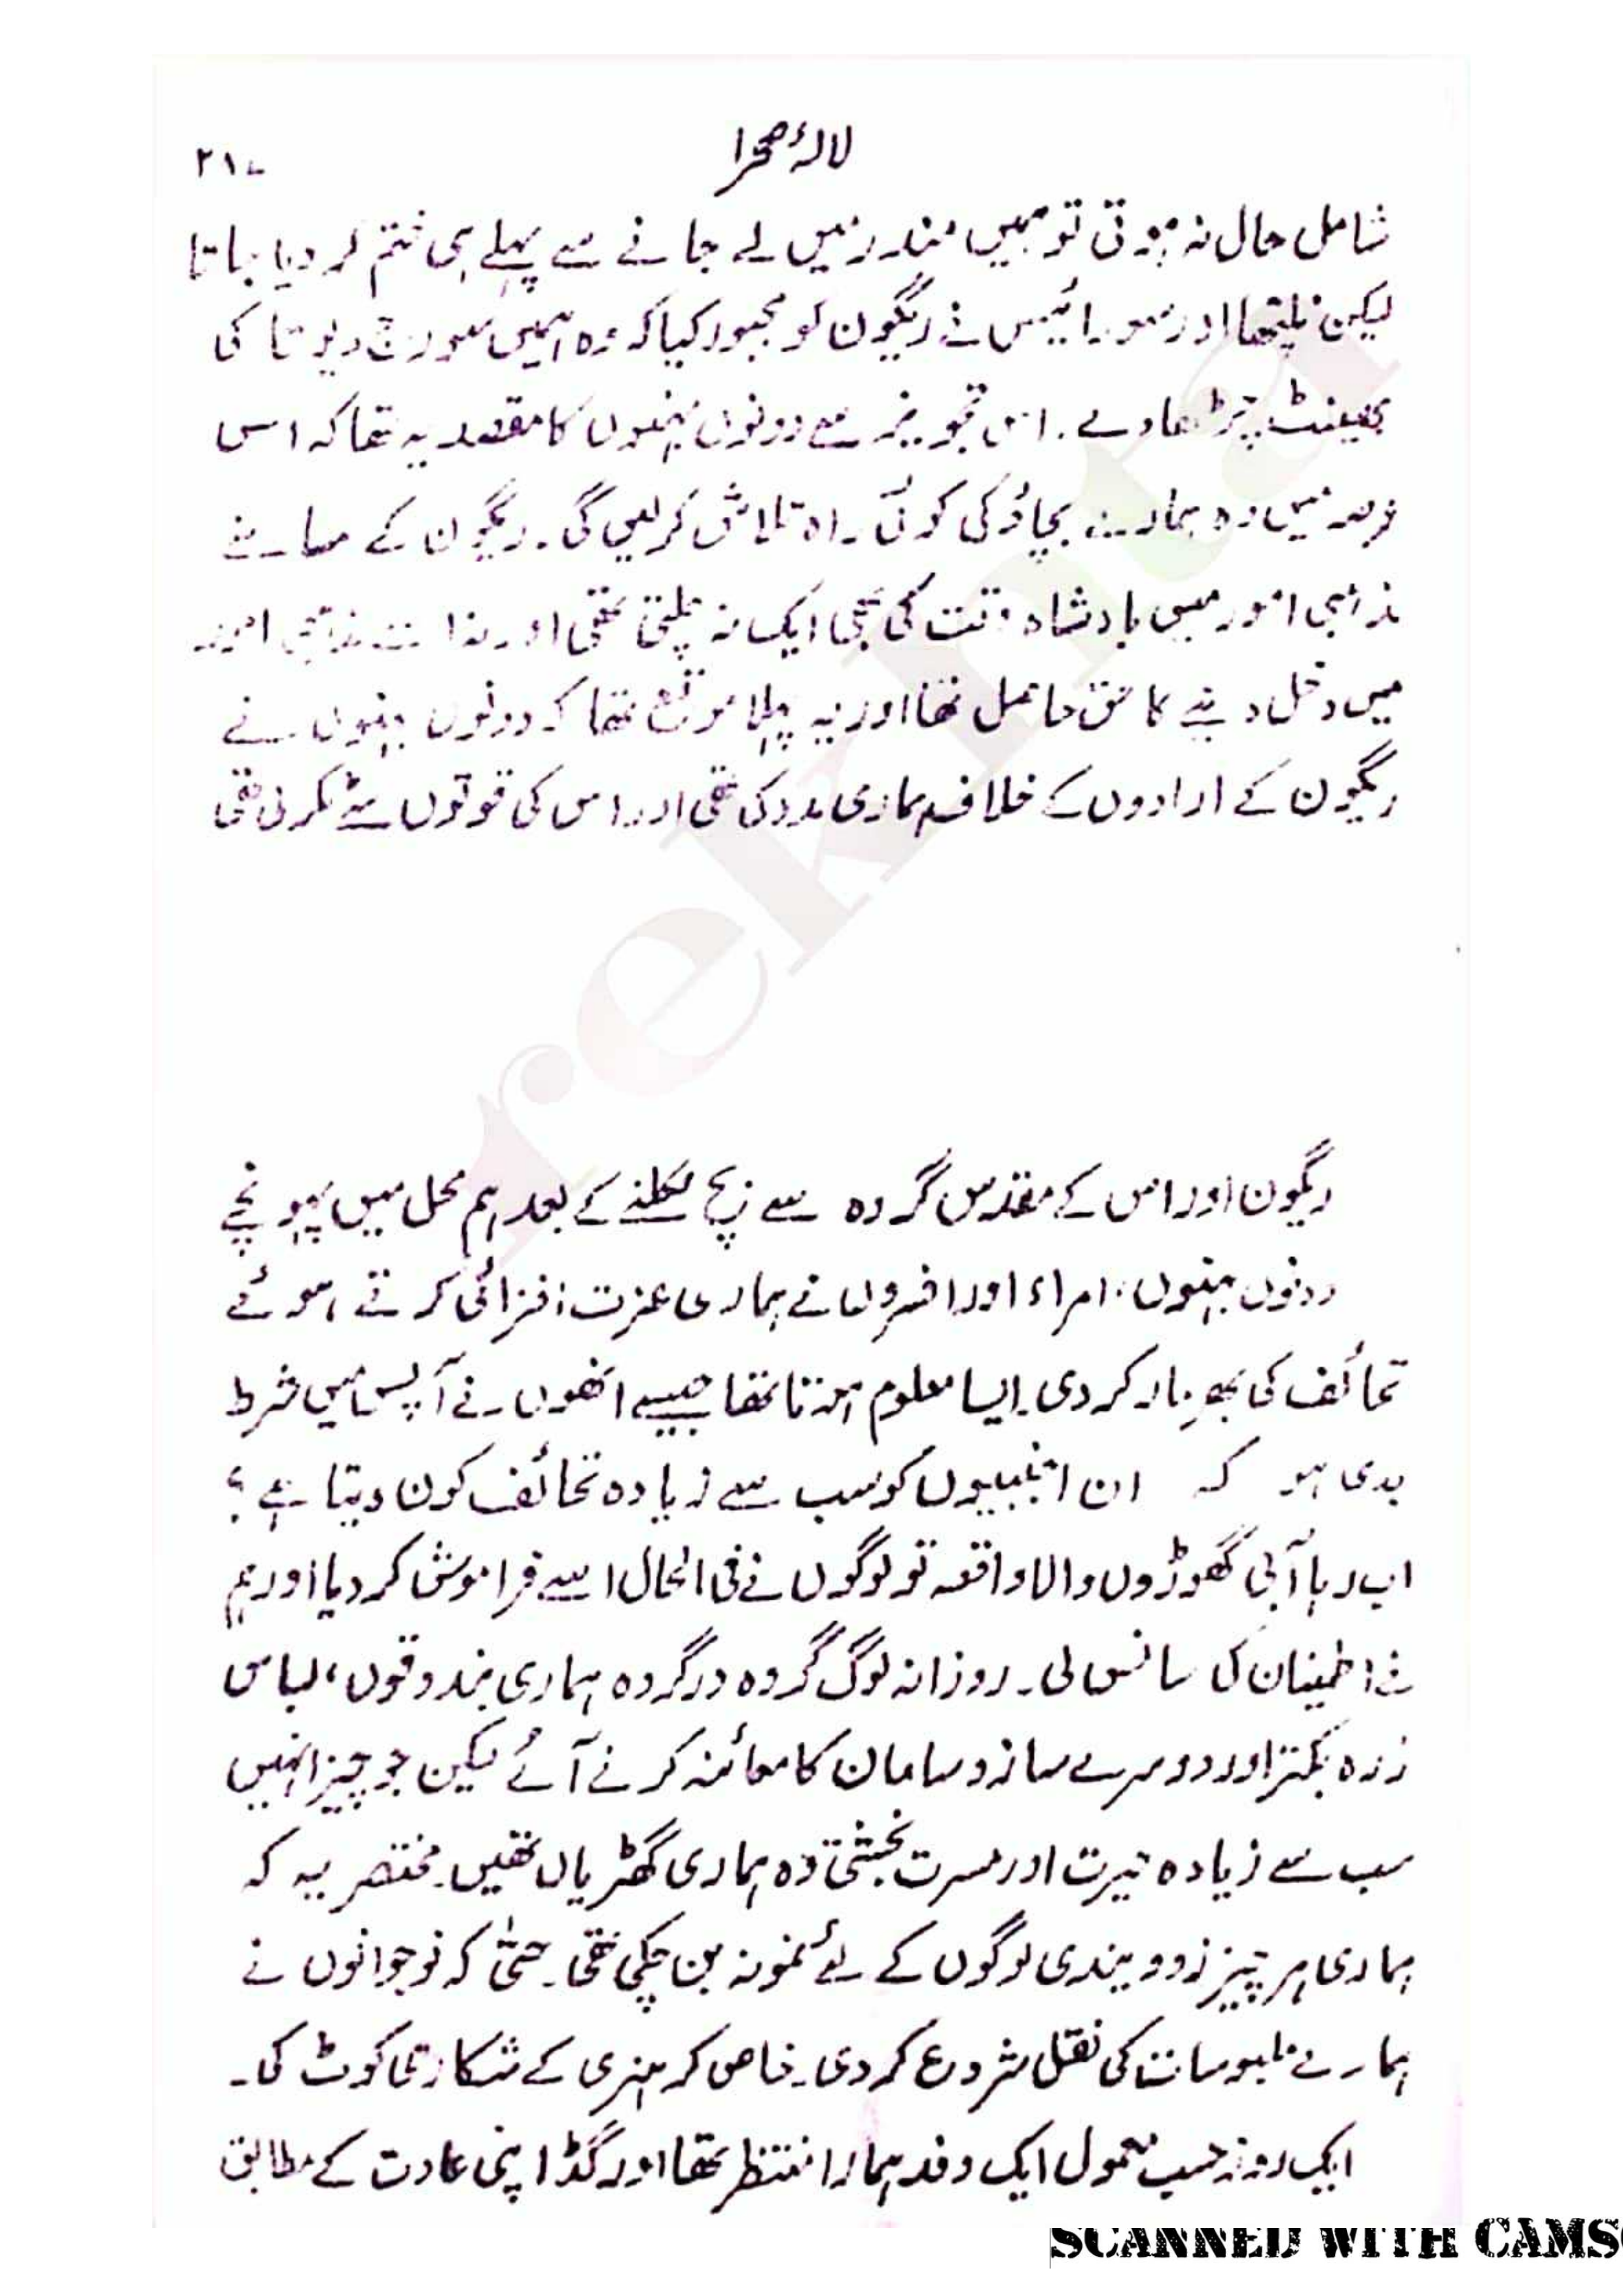 لالۂ صحرا
۲۱۷
شامل حال نہ ہوتی تو ہمیں مندر میں لے جانے سے پہلے ہی ختم کر دیا جاتا
لیکن نلیتھا اور سورائیس نے ریگون کو مجبور کیا کہ وہ ہمیں سورج دیوتا کی
بھینٹ چڑھا دے۔ اس تجویز سے دونوں بہنوں کا مقصد یہ تھا کہ اس
عرصہ میں وہ ہمارے بچاؤ کی کوئی راہ تلاش کر لیں گی۔ ریگون کے سامنے
مذہبی امور میں بادشاہ وقت کی بھی ایک نہ چلتی تھی اور نہ اسے مذہبی امور
میں دخل دینے کا حق حاصل تھا اور یہ پہلا موقع تھا کہ دونوں بہنوں نے
ریگون کے ارادوں کے خلاف ہماری مدد کی تھی اور اس کی قوتوں سے ٹکر لی تھی
ریگون اور اس کے مقدس گروہ سے بچ نکلنے کے بعد ہم محل میں پہونچے
دونوں بہنوں، امراء اور افسروں نے ہماری عزت افزائی کرتے ہوئے
تحائف کی بھرمار کر دی۔ ایسا معلوم ہوتا تھا جیسے انھوں نے آپس میں شرط
بدی ہو کہ ان اجنبیوں کو سب سے زیادہ تحائف کون دیتا ہے؟
اب رہا آبی گھوڑوں والا واقعہ تو لوگوں نے فی الحال اسے فراموش کر دیا اور ہم
نے اطمینان کی سانس لی۔ روزانہ لوگ گروہ در گروہ ہماری بندوقوں، لباس
زرہ بکتر اور دوسرے ساز و سامان کا معائنہ کرنے آئے لیکن جو چیز انہیں
سب سے زیادہ حیرت اور مسرت بخشتی وہ ہماری گھڑیاں تھیں۔ مختصر یہ کہ
ہماری ہر چیز زوویندی لوگوں کے لئے نمونہ بن چکی تھی۔ حتیٰ کہ نوجوانوں نے
ہمارے ملبوسات کی نقل شروع کر دی۔ خاص کر ہنری کے شکاری کوٹ کی۔
ایک روز حسب معمول ایک وفد ہمارا منتظر تھا اور گڈ اپنی عادت کے مطابق
rekhta
SCANNED WITH CAMS